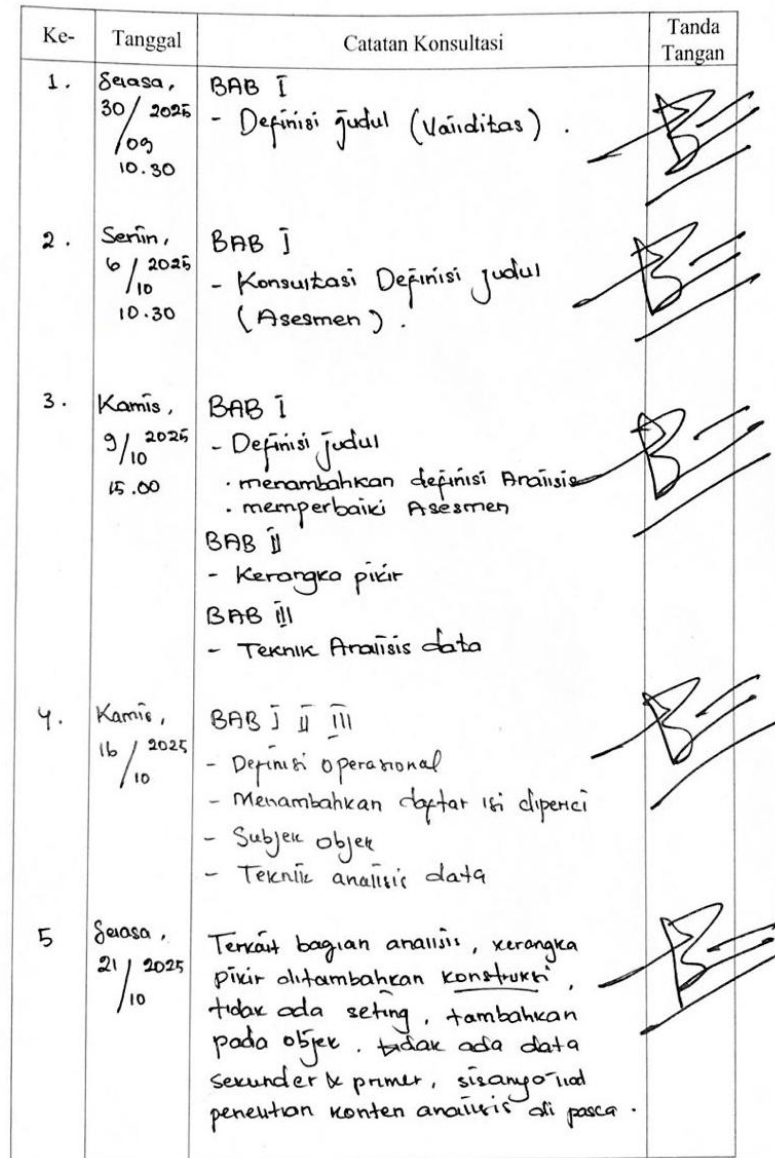 Ke- Tanggal Catatan Konsultasi Tanda Tangan
1. Selasa, 30/09 2025 10.30
BAB I
- Definisi judul (Validitas).
2. Senin, 6/10 2025 10.30
BAB I
- Konsultasi Definisi judul
(Asesmen).
3. Kamis, 9/10 2025 15.00
BAB I
- Definisi judul
· menambahkan definisi Analisis
· memperbaiki Asesmen
BAB II
- Kerangka pikir
BAB III
- Teknik Analisis data
4. Kamis, 16/10 2025
BAB I II III
- Definisi operasional
- Menambahkan daftar isi diperici
- Subjek objek
- Teknik analisis data
5 Selasa, 21/10 2025
Terkait bagian analisis, kerangka
pikir ditambahkan konstruksi,
tidak ada seting, tambahkan
pada objek. tidak ada data
sekunder & primer, sisanya
penelitian konten analisis di pasca.